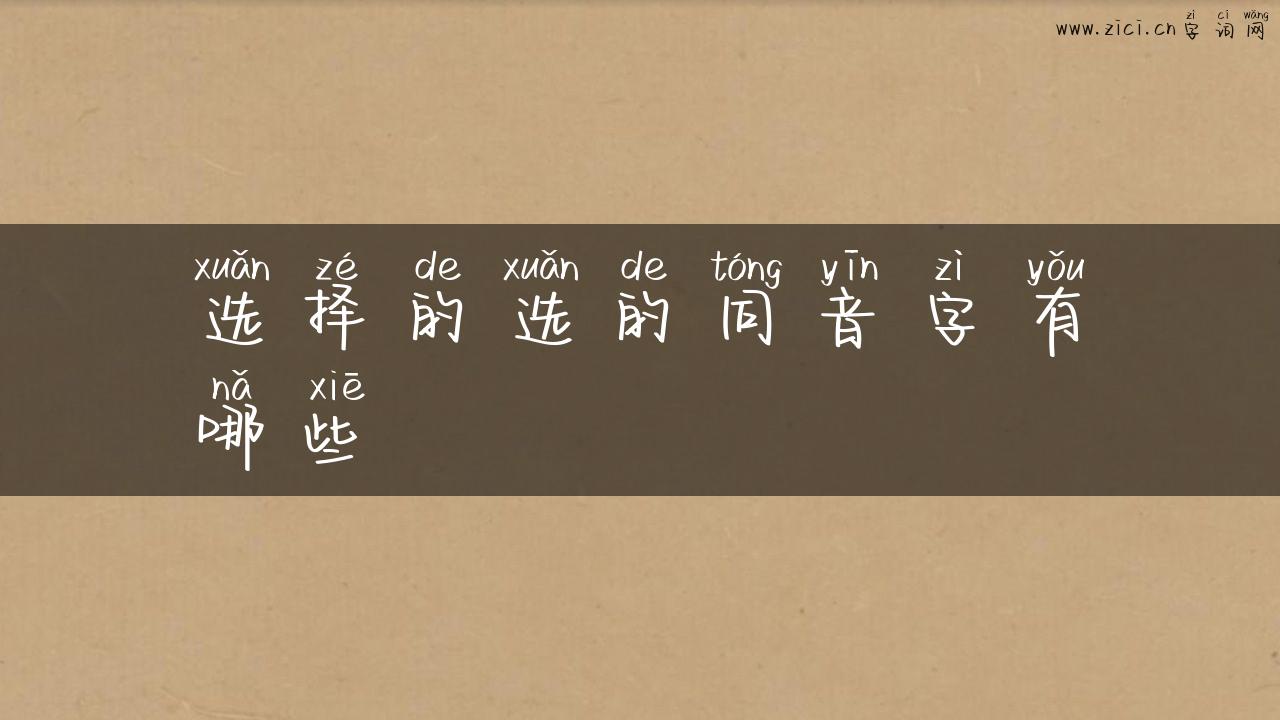 zì cí wǎng
www.zici.cn 字词网
xuǎn zé de xuǎn de tóng yīn zì yǒu
选择的选的同音字有
nǎ xiē
哪些